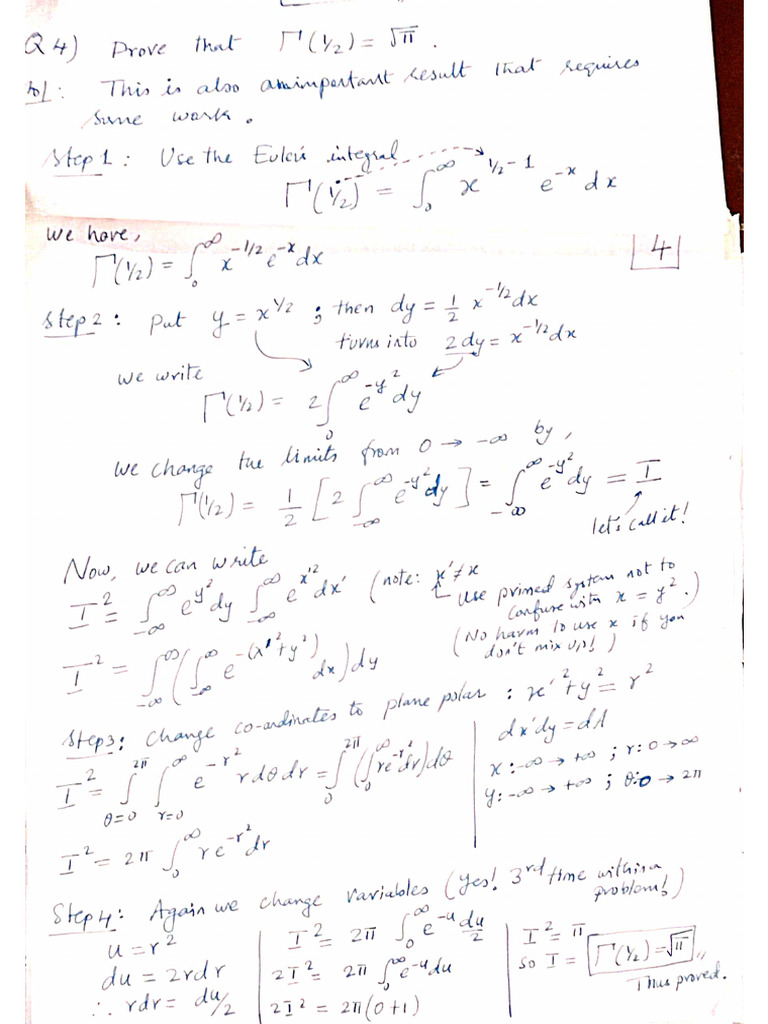 Q4) Prove that Γ(1/2) = √π.
Sol: This is also an important result that requires
some work.
Step 1: Use the Euler's integral
Γ(1/2) = ∫₀^∞ x^(1/2 - 1) e^(-x) dx
We have,
Γ(1/2) = ∫₀^∞ x^(-1/2) e^(-x) dx
4
Step 2: Put y = x^(1/2) ; then dy = 1/2 x^(-1/2) dx
turns into 2dy = x^(-1/2) dx
We write
Γ(1/2) = 2∫₀^∞ e^(-y²) dy
We change the limits from 0 → -∞ by,
Γ(1/2) = 1/2 [2 ∫_(-∞)^∞ e^(-y²) dy] = ∫_(-∞)^∞ e^(-y²) dy = I
let's call it!
Now, we can write
I² = ∫_(-∞)^∞ e^(y²) dy ∫_(-∞)^∞ e^(x'²) dx' (note: x' ≠ x
Use primed system not to
confuse with x = y².)
(No harm to use x if you
don't mix up!)
I² = ∫_(-∞)^∞ (∫_(-∞)^∞ e^(-(x'²+y²)) dx) dy
Step 3: Change co-ordinates to plane polar : x'² + y² = r²
I² = ∫_(θ=0)^(2π) ∫_(r=0)^∞ e^(-r²) r dθ dr = ∫₀^(2π) (∫₀^∞ r e^(-r²) dr) dθ
I² = 2π ∫₀^∞ r e^(-r²) dr
dx'dy = dA
x: -∞ → +∞ ; r: 0 → ∞
y: -∞ → +∞ ; θ: 0 → 2π
Step 4: Again we change variables (Yes! 3rd time within a
problem!)
u = r²
du = 2rdr
∴ rdr = du/2
I² = 2π ∫₀^∞ e^(-u) du/2
2I² = 2π ∫₀^∞ e^(-u) du
2I² = 2π(0+1)
I² = π
so I = Γ(1/2) = √π,,
Thus proved.